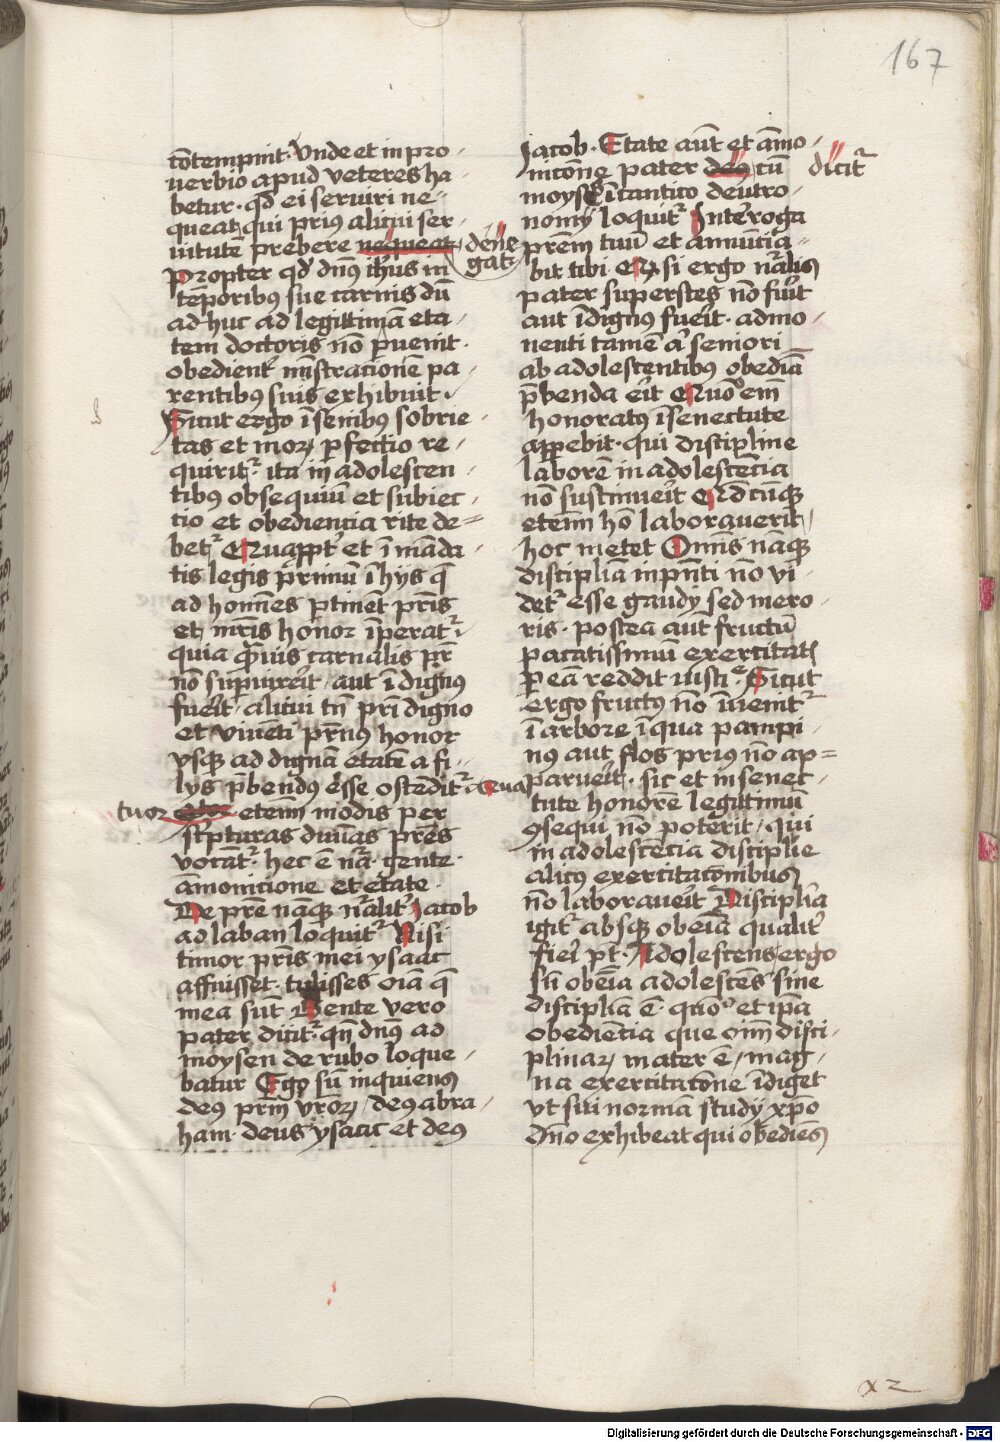 167
cōtempnit· Unde et in pro-
verbio apud veteres ha-
betur· qd ei serviri ne-
queat, qui prius alicui ser-
vitutē prebere nequeat
dēne
gat
Propter qd dn̄s ih̄us in
tēporibus sue carnis dū
ad huc ad legittimā eta-
tem doctoris nō pvenit·
obedient mīstracionē pa-
rentibus suis exhibuit·
Sicut ergo ī senibus sobrie-
tas et morꝝ pfectio re-
quirit᷑· ita in adolescen-
tibus obsequiū et subiec-
tio et obediencia rite de-
bet᷑ Quāppt᷑ et ī mādā
tis legis primū ī hijs q̄
ad homīes ptinēt pris
et mris honor īperat᷑·
quia q̄mvis carnalis pr̄
nō supvixerit, aut īdignus
fuerit, alicui tn̄ pri digno
et viventi prnus honor
vsq̨ ad dignā etatē a fi-
lijs p̄bendus esse ostendit᷑· Qua
tuor etenim modis per
scripturas divinas pres
vocāt᷑· hec ē nr̄a· gente·
āmonicione et etate·
De pre nāq̨ nr̄alit᷑ Jacob
ad laban loquit᷑ Nisi
timor pris mei ysaac
affuisset· tulisses oīa q̄
mea sūt Gente vero
pater dicit᷑· qn̄ dn̄s ad
moysen de rubo loque-
batur Ego sū inquiens
deus prm vrorꝝ, deus abra-
ham· deus ysaac et deus
Jacob· Etate aūt et āmo-
nicōne pater deus cū
dicit᷑
moyses ī cantico deutro-
nomij loquit᷑ Interoga
prēm tuū et annūcia-
bit tibi Qꝝ si ergo nr̄alis
pater superstes nō fuit
aut īdignus fuerit· admo-
nenti tamē et seniori
ab adolescentibus obediā
p̄benda erit Quō em̄
honoratus ī senectute
apparebit· qui discipline
laborē in adolescēcia
nō sustinuerit Qd cūq̨
etenī hō laboraverit
hoc metet Omīs nāq̨
disciplīa in pn̄ti nō vi-
det᷑ esse gaudij sed mero-
ris· postea aut fructū
pacatissimū exercitatis
p eā reddit iusticie Sicut
ergo fructus nō īvenit᷑
ī arbore ī qua pampi-
nus aut flos prius nō ap-
paruerit· sic et in senec-
tute honorē legittimū
ꝯsequi nō poterit, qui
in adolescēcia discipline
alicuius exercitacionibus
nō laboraverit Disciplīa
igit᷑ absq̨ obēia qualit᷑
fieri pt· Adolescens ergo
sn̄ obēia adolescēs sine
disciplīa ē· quō et ipa
obediēcia que oīm disci-
plinarꝝ mater ē, mag-
na exercitacōne īdiget
vt sui normā studij xpō
dn̄o exhibeat qui obediēs
x2
Digitalisierung gefördert durch die Deutsche Forschungsgemeinschaft - DFG